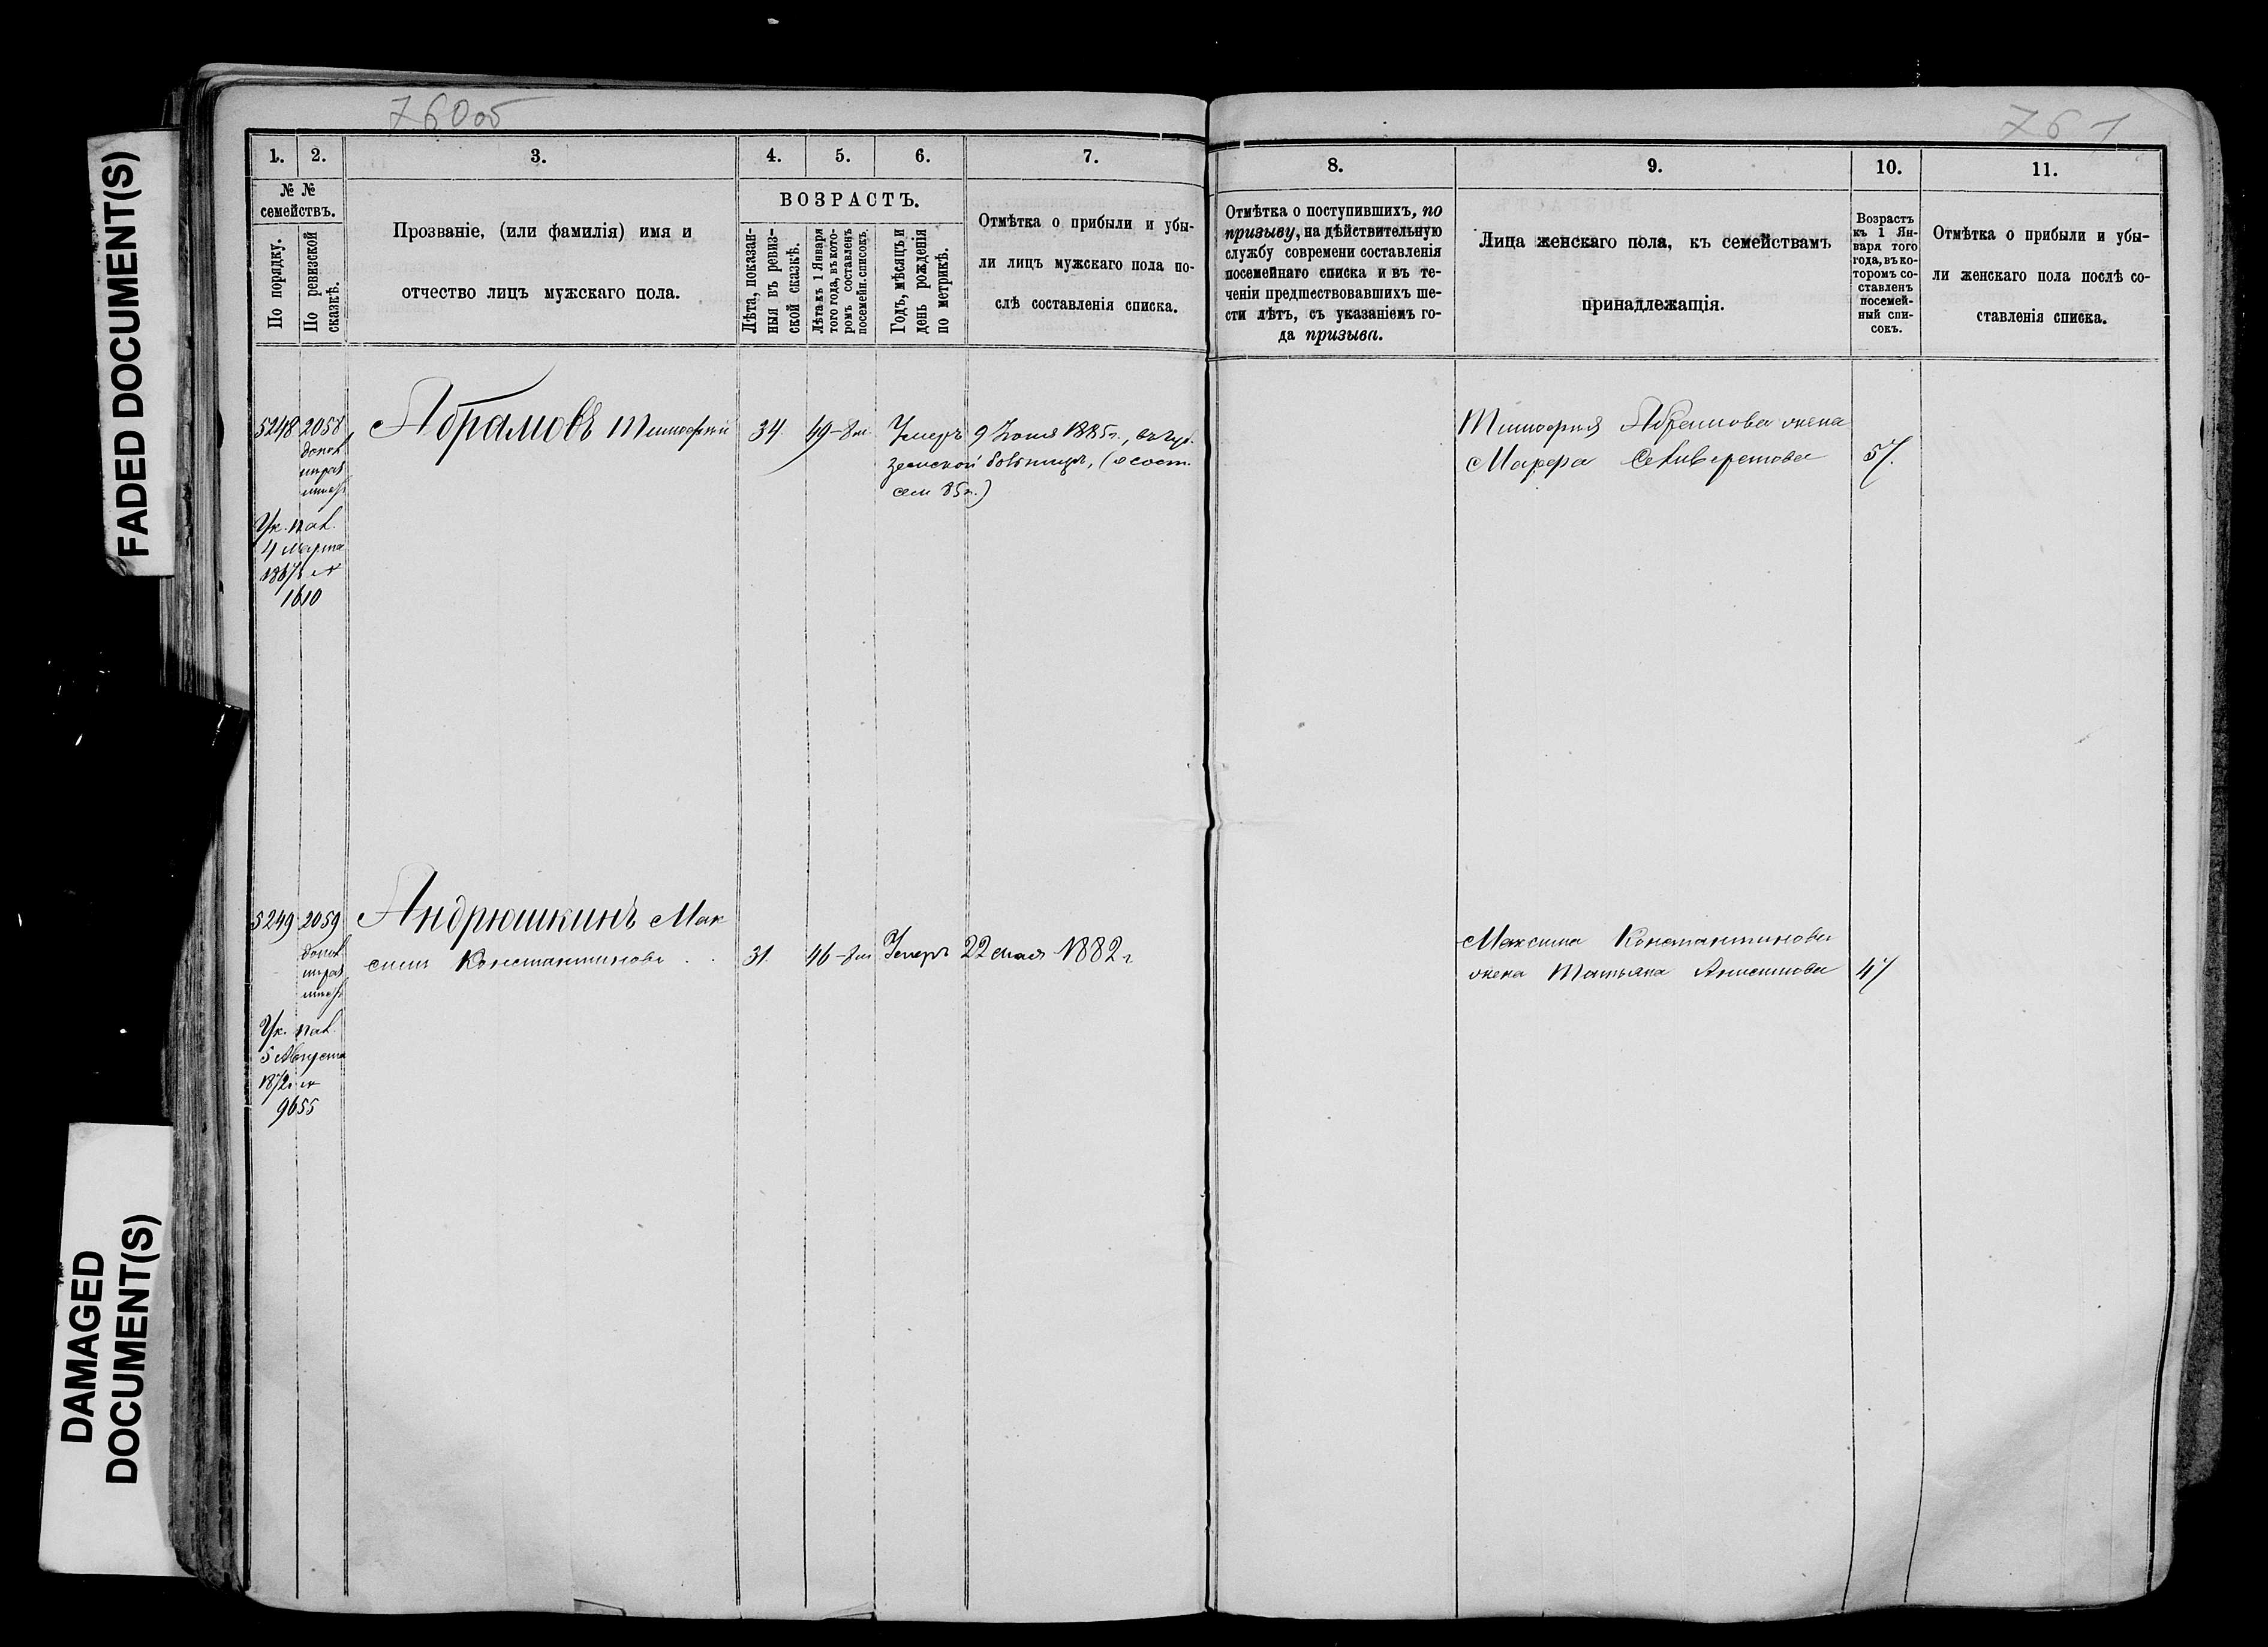 760об
761
FADED DOCUMENT(S)
DAMAGED
DOCUMENT(S)
1.
2.
3.
4.
5.
6.
7.
№ №
семействъ.
По порядку.
По ревизской
сказкѣ.
Прозваніе, (или фамилія) имя и
отчество лицъ мужскаго пола.
ВОЗРАСТЪ.
Лѣта, показан-
ныя въ ревиз-
ской сказкѣ.
Лѣта къ 1 Января
того года, въ кото-
ромъ составленъ
посемейн. списокъ.
Годъ, мѣсяцъ и
день рожденія
по метрикѣ.
Отмѣтка о прибыли и убы-
ли лицъ мужскаго пола по-
слѣ составленія списка.
8.
9.
10.
11.
Отмѣтка о поступившихъ, по
призыву, на дѣйствительную
службу современи составленія
посемейнаго списка и въ те-
ченіи предшествовавшихъ ше-
сти лѣтъ, съ указаніемъ го-
да призыва.
Лица женскаго пола, къ семействамъ
принадлежащія.
Возрастъ
къ 1 Ян-
варя того
года, въ ко-
торомъ со-
ставленъ
посемей-
ный спи-
сокъ.
Отмѣтка о прибыли и убы-
ли женскаго пола послѣ со-
ставленія списка.
5248 2058 Абрамовъ Тимофей 34 49-8м. Умеръ 9 Іюня 1885г., въ губ.
земской больницѣ, (
сем 85г.)
Ук. пал.
4 Марта
1867г №
1610
Тимофея Абрамова жена
Марфа Селиверстова 57.
5249 2059 Андрюшкинъ Мак
симъ Константиновъ 31. 46-8м Умеръ 22 мая 1882 г
Ук. пал.
5 Августа
1872г №
9655
Максима Константинова
жена Татьяна Анисимова 47